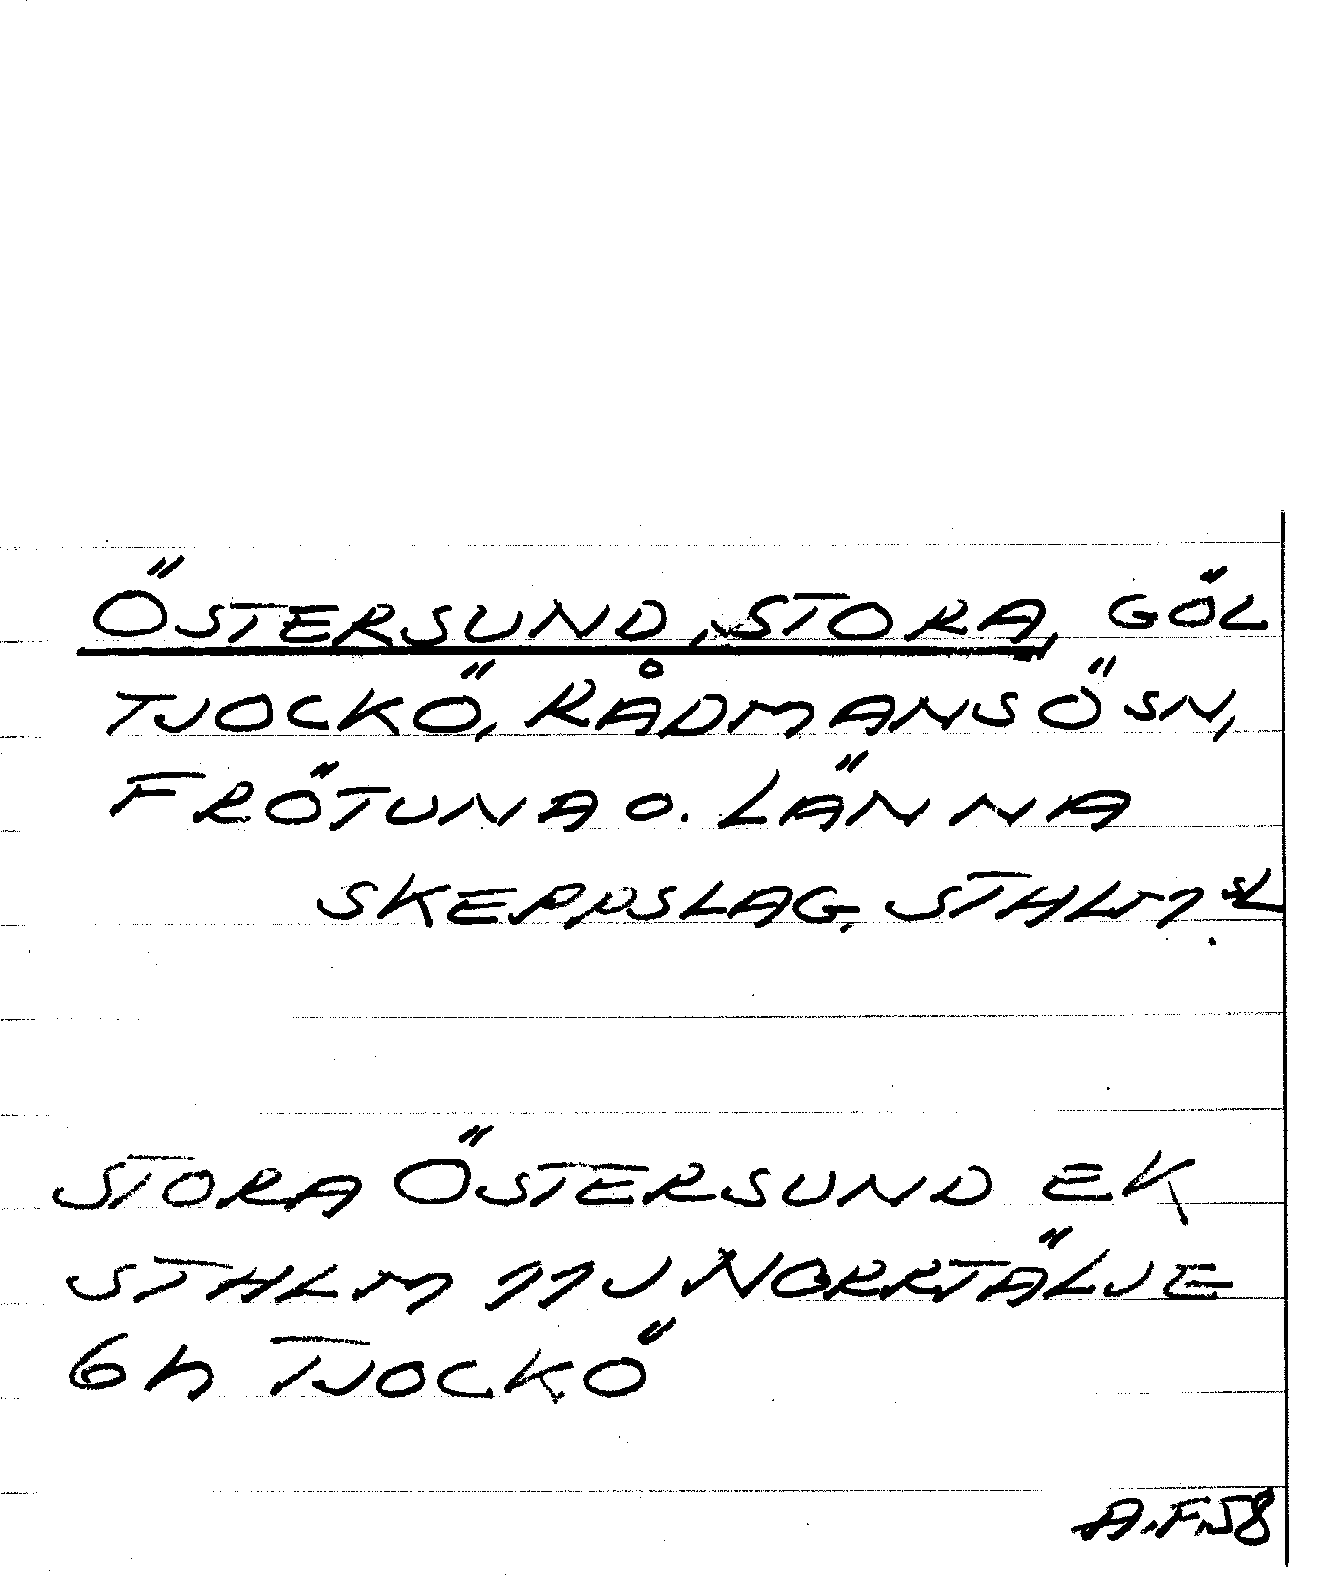 ÖSTERSUND, STORA, GÖL
TJOCKÖ, RÅDMANSÖ SN,
FRÖTUNA O. LÄNNA
SKEPPSLAG, STHLMS L.
STORA ÖSTERSUND EK
STHLM 11J NORRTÄLJE
6h TJOCKÖ
A.F.58